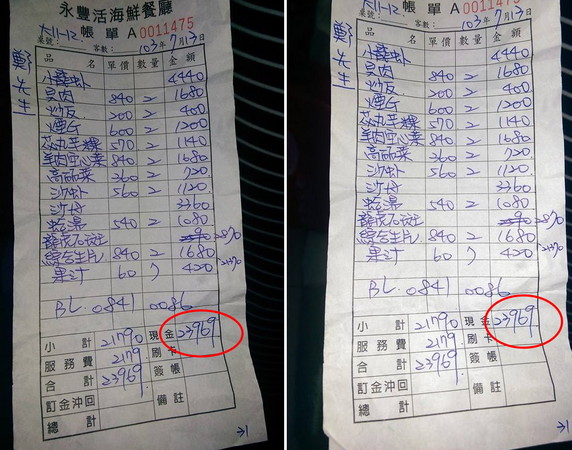 永豐活海鮮餐廳
大11-12. 帳單 A 0011475
桌號: 客數: 103年7月13日
鄭先生
品名 單價 數量 金額
小龍虾 4440
貝肉 840 2 1680
炒反 200 2 400
煙G 600 2 1200
570 2 1140
羊肉空心菜 840 2 1680
高麗菜 360 2 720
沙虾 560 2 1120
沙母 3360
蛤湯 540 2 1080
龍虎石斑 2870
綜合生片 840 2 1680
果汁 60 7 420
BL.0841 0086
小計 21790 現金 23969
服務費 2179 刷卡
合計 23969 簽帳
訂金沖回 備註
總計
永豐活海鮮餐廳
大11-12. 帳單 A 0011475
桌號: 客數: 103年7月13日
鄭先生
品名 單價 數量 金額
小龍虾 4440
貝肉 840 2 1680
炒反 200 2 400
煙G 600 2 1200
570 2 1140
羊肉空心菜 840 2 1680
高麗菜 360 2 720
沙虾 560 2 1120
沙母 3360
蛤湯 540 2 1080
龍虎石斑 2870
綜合生片 840 2 1680
果汁 60 7 420
BL.0841 0086
小計 21790 現金 23969
服務費 2179 刷卡
合計 23969 簽帳
訂金沖回 備註
總計